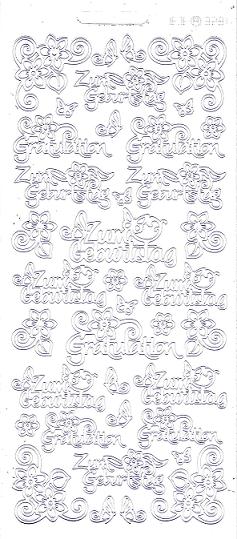 Zum
Geburtstag
Gratulation
Gratulation
Zum
Geburtstag
Zum
Geburtstag
Zum
Geburtstag
Zum
Geburtstag
Zum
Geburtstag
Gratulation
Zum
Geburtstag
Zum
Geburtstag
Gratulation
Gratulation
Zum
Geburtstag